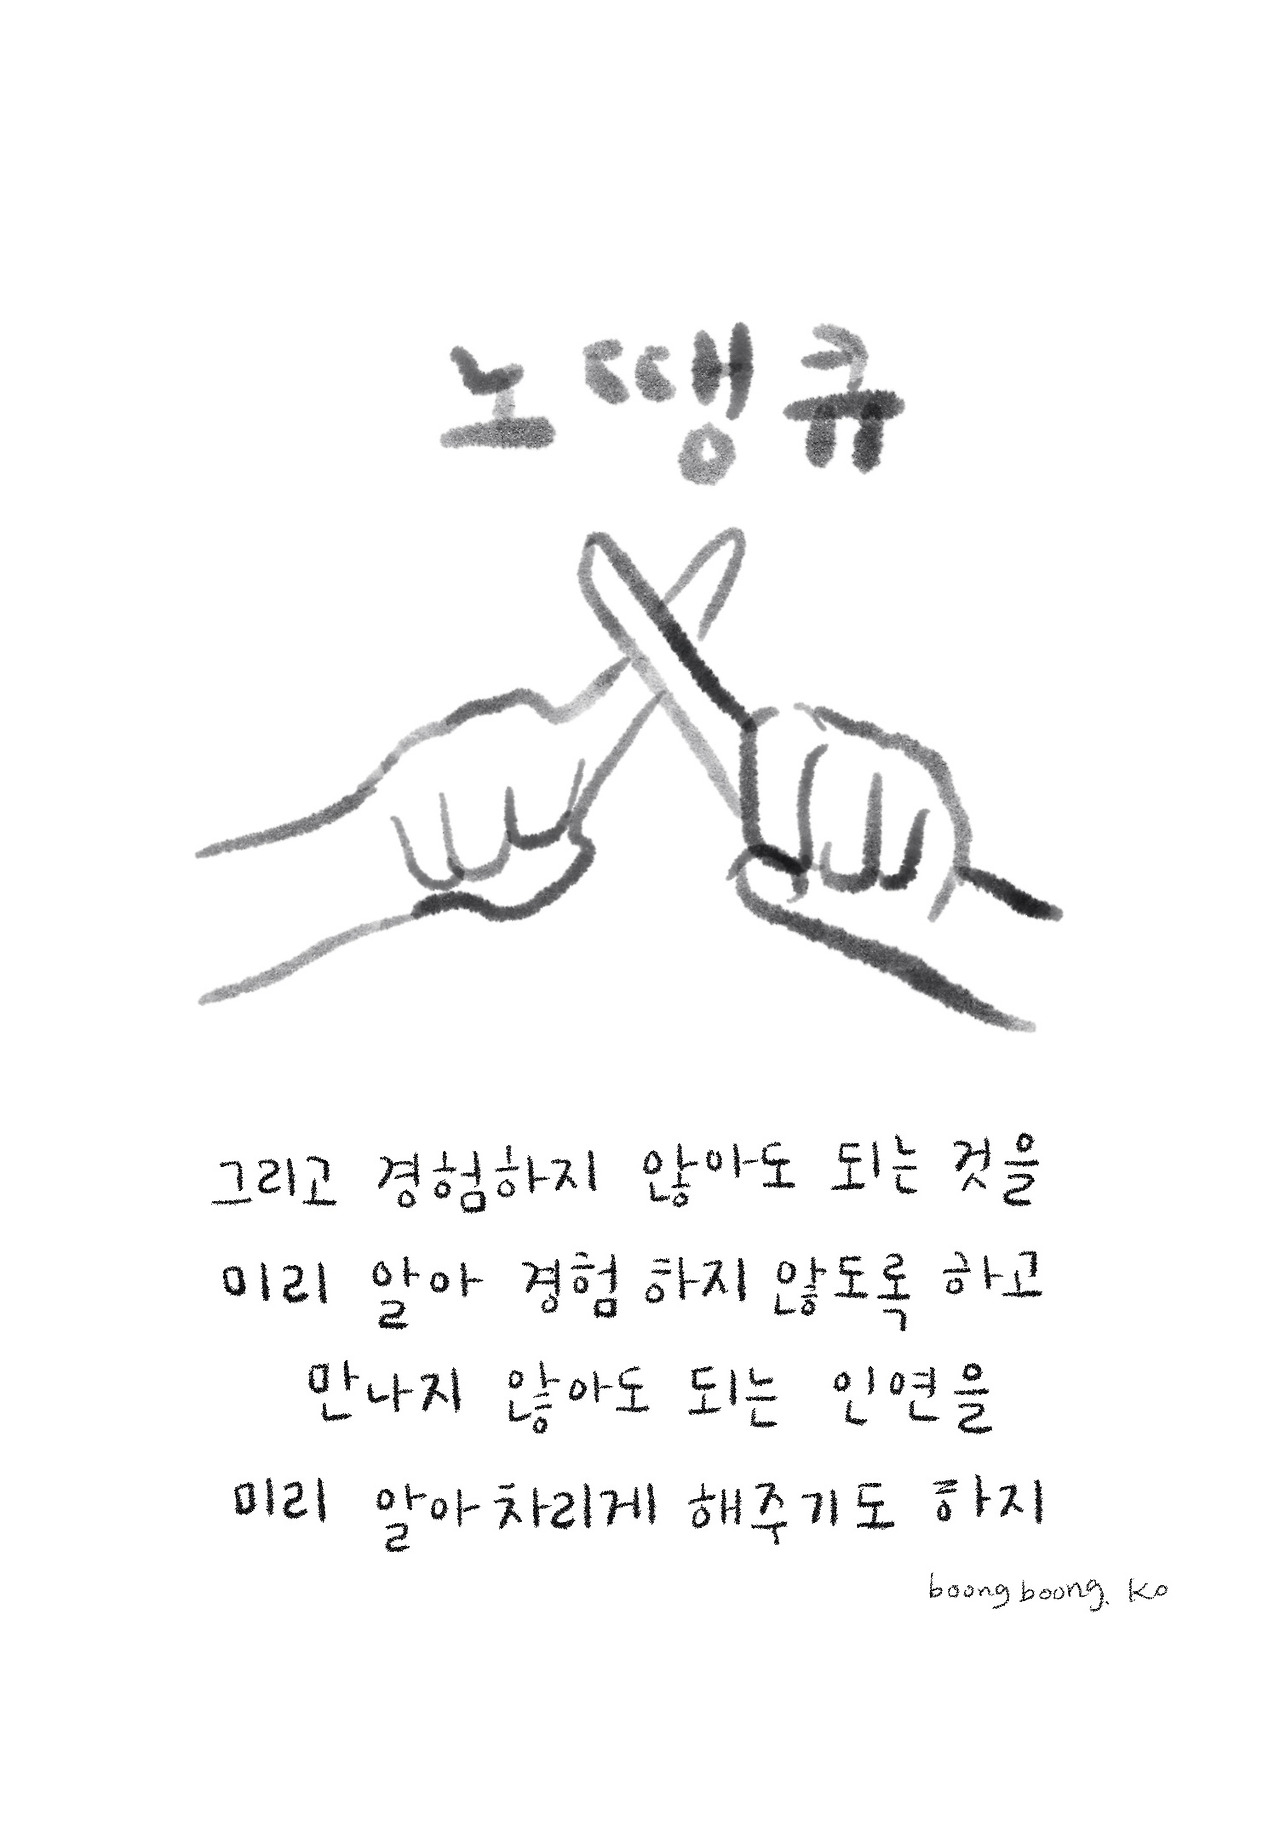 노 땡큐
그리고 경험하지 않아도 되는 것을
미리 알아 경험하지 않도록 하고
만나지 않아도 되는 인연을
미리 알아차리게 해주기도 하지
boongboong. Ko